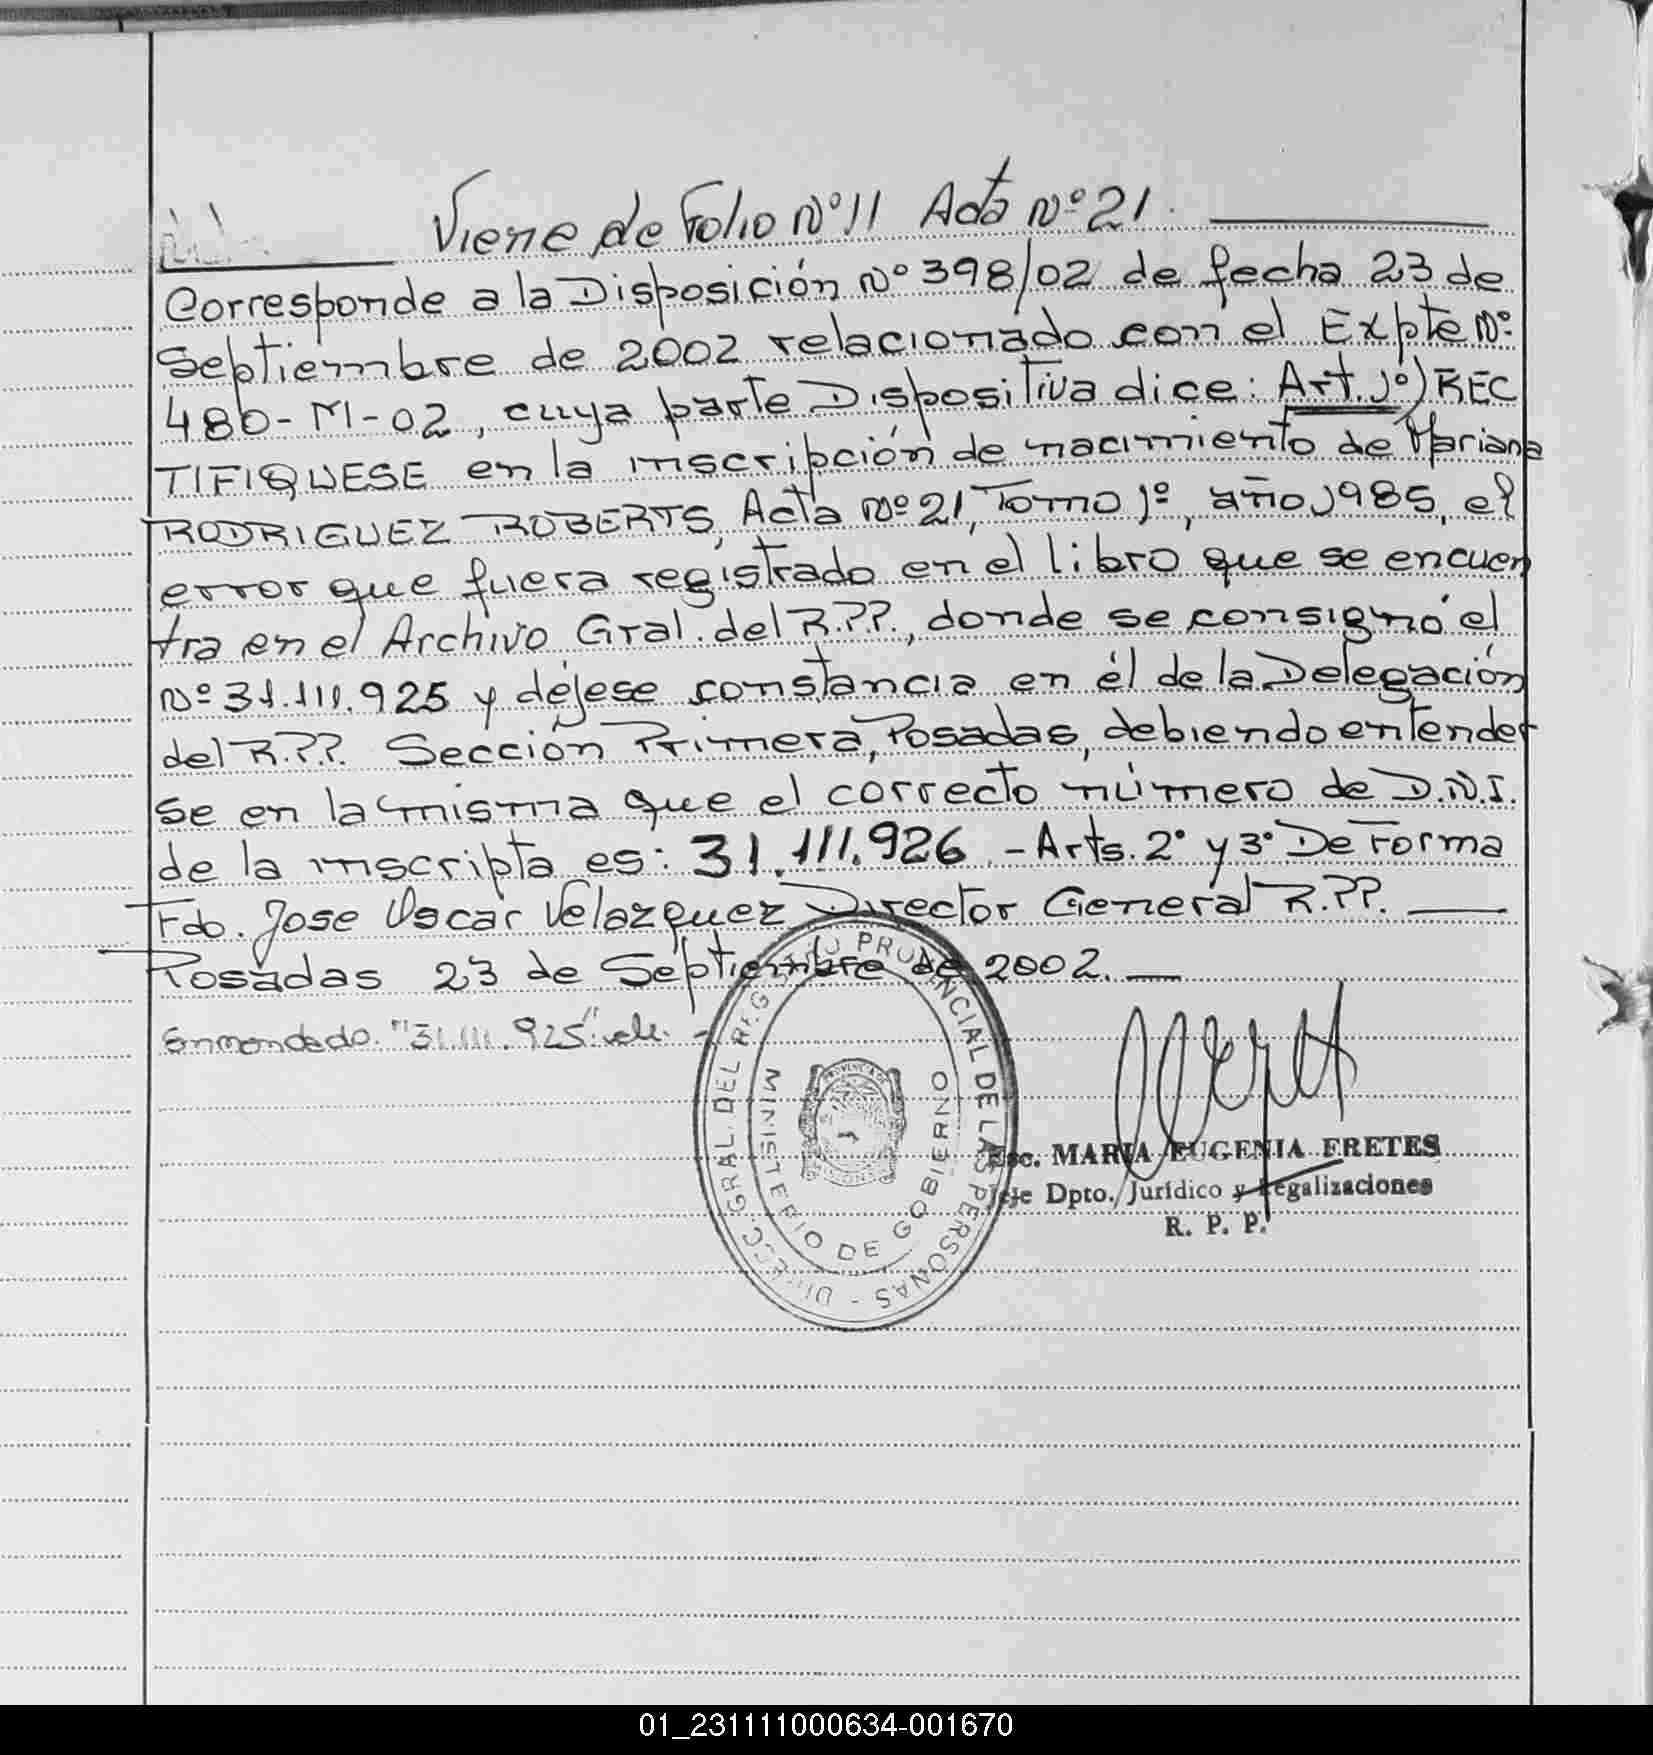 Viene de Folio Nº 11 Acta Nº 21
Corresponde a la Disposición Nº 398/02 de fecha 23 de
Septiembre de 2002 relacionado con el Expte Nº
480-M-02, cuya parte Dispositiva dice: Art. 1º) REC
TIFIQUESE en la inscripción de nacimiento de Mariana
RODRIGUEZ ROBERTS, Acta Nº 21, Tomo 1º, año 1985, el
error que fuera registrado en el libro que se encuen
tra en el Archivo Gral. del R.P.P., donde se consignó el
Nº 31.111.925 y déjese constancia en él de la Delegación
del R.P.P. Sección Primera, Posadas, debiendo entender
se en la misma que el correcto número de D.N.I.
de la inscripta es: 31.111.926.- Arts. 2º y 3º De Forma
Fdo. Jose Oscar Velazquez Director General R.P.P.
Posadas 23 de Septiembre de 2002.
Enmendado. "31.111.925" vale. -
DIRECC. GRAL. DEL REG PROVINCIAL DE LAS PERSONAS -
MINISTERIO DE GOBIERNO
Esc. MARIA EUGENIA FRETES
Jefe Dpto. Jurídico y Legalizaciones
R. P. P.
01_231111000634-001670